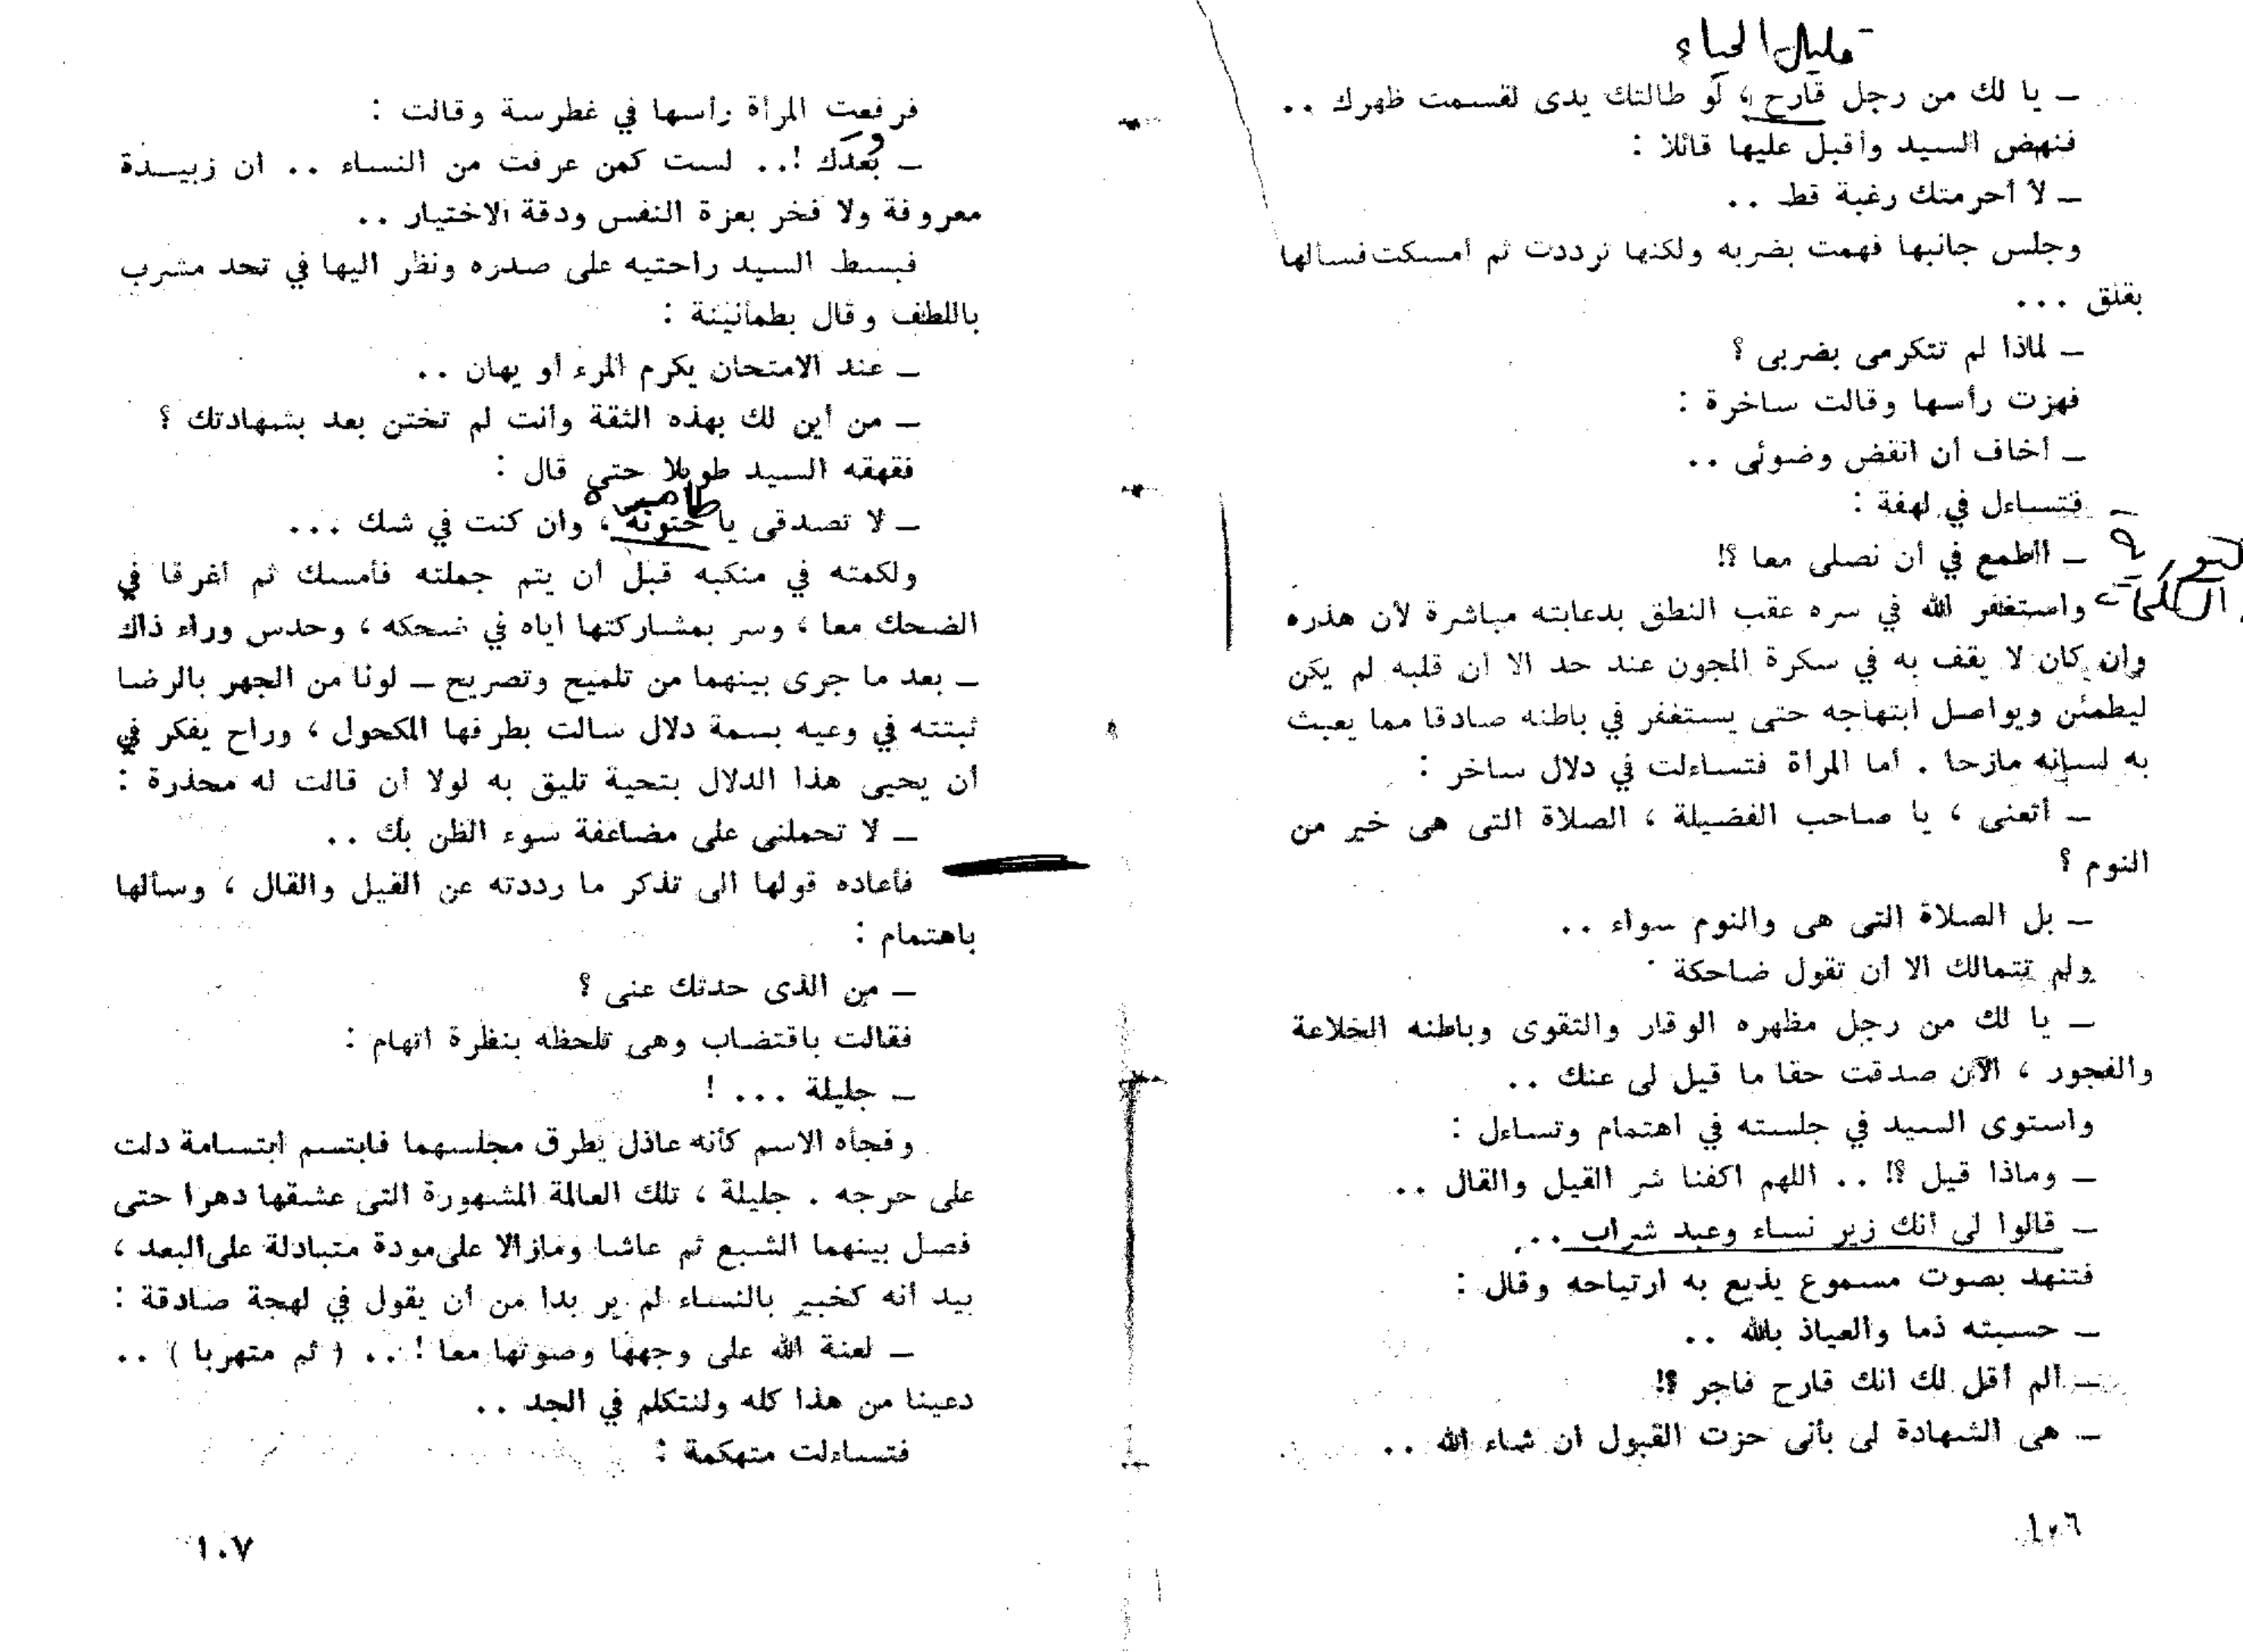 قليل الحياء
ـ يا لك من رجل قارح ، لو طالتك يدى لقسمت ظهرك ..
فنهض السيد وأقبل عليها قائلا :
ـ لا أحرمتك رغبة قط ..
وجلس جانبها فهمت بضربه ولكنها ترددت ثم أمسكت فسألها
بقلق ...
ـ لماذا لم تتكرمى بضربى ؟
فهزت رأسها وقالت ساخرة :
ـ أخاف أن انقض وضوئى ..
فتساءل في لهفة :
ـ أأطمع في أن نصلى معا ؟!
واستغفر الله في سره عقب النطق بدعابته مباشرة لأن هذره
وان كان لا يقف به في سكرة المجون عند حد الا أن قلبه لم يكن
ليطمئن ويواصل ابتهاجه حتى يستغفر في باطنه صادقا مما يعبث
به لسانه مازحا . أما المرأة فتساءلت في دلال ساخر :
ـ أتعنى ، يا صاحب الفضيلة ، الصلاة التى هى خير من
النوم ؟
ـ بل الصلاة التى هى والنوم سواء ..
ولم تتمالك الا أن تقول ضاحكة :
ـ يا لك من رجل مظهره الوقار والتقوى وباطنه الخلاعة
والفجور ، الآن صدقت حقا ما قيل لى عنك ..
واستوى السيد في جلسته في اهتمام وتساءل :
ـ وماذا قيل ؟! .. اللهم اكفنا شر القيل والقال ..
ـ قالوا لى أنك زير نساء وعبد شراب ..
فتنهد بصوت مسموع يذيع به ارتياحه وقال :
ـ حسبته ذما والعياذ بالله ..
ـ ألم أقل لك انك قارح فاجر ؟!
ـ هى الشهادة لى بأنى حزت القبول ان شاء الله ..
١٠٦
فرفعت المرأة رأسها في غطرسة وقالت :
ـ بُعدَك !.. لست كمن عرفت من النساء .. ان زبيدة
معروفة ولا فخر بعزة النفس ودقة الاختيار ..
فبسط السيد راحتيه على صدره ونظر اليها في تحد مشرب
باللطف وقال بطمأنينة :
ـ عند الامتحان يكرم المرء أو يهان ..
ـ من أين لك بهذه الثقة وأنت لم تختن بعد بشهادتك ؟
فقهقه السيد طويلا حتى قال :
ـ لا تصدقى يا ختونة ، وان كنت في شك ...
ولكمته في منكبه قبل أن يتم جملته فأمسك ثم أغرقا في
الضحك معا ، وسر بمشاركتها اياه في ضحكه ، وحدس وراء ذاك
ـ بعد ما جرى بينهما من تلميح وتصريح ـ لونا من الجهر بالرضا
ثبتته في وعيه بسمة دلال سالت بطرفها المكحول ، وراح يفكر في
أن يحيى هذا الدلال بتحية تليق به لولا أن قالت له محذرة :
ـ لا تحملنى على مضاعفة سوء الظن بك ..
فأعاده قولها الى تذكر ما رددته عن القيل والقال ، وسألها
باهتمام :
ـ من الذى حدثك عنى ؟
فقالت باقتضاب وهى تلحظه بنظرة اتهام :
ـ جليلة ... !
وفجأه الاسم كأنه عاذل يطرق مجلسهما فابتسم ابتسامة دلت
على حرجه . جليلة ، تلك العالمة المشهورة التى عشقها دهرا حتى
فصل بينهما الشبع ثم عاشا ومازالا على مودة متبادلة على البعد ،
بيد أنه كخبير بالنساء لم ير بدا من أن يقول في لهجة صادقة :
ـ لعنة الله على وجهها وصوتها معا ! .. ( ثم متهربا ) ..
دعينا من هذا كله ولنتكلم في الجد ..
فتساءلت متهكمة :
١٠٧